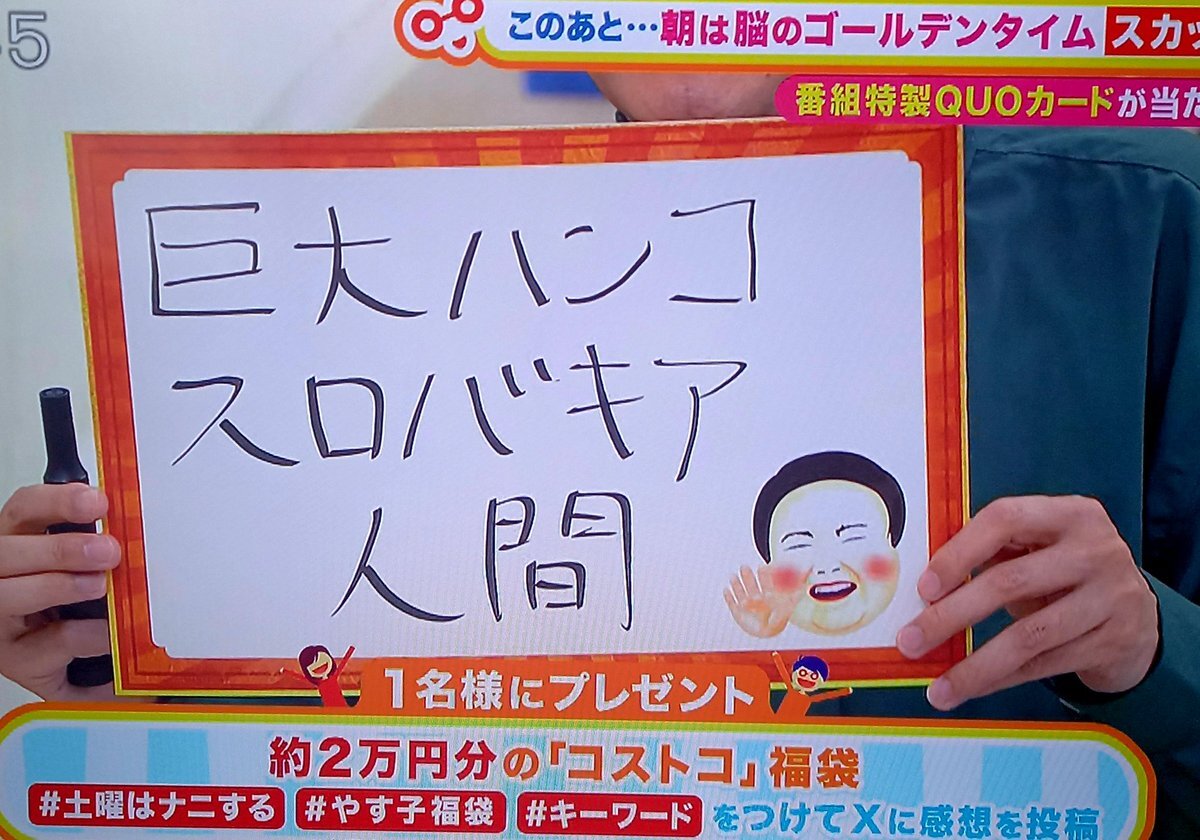 5
このあと…朝は脳のゴールデンタイム スカッ
番組特製QUOカードが当た
巨大ハンコ
スロバキア
人間
1名様にプレゼント
約2万円分の「コストコ」福袋
#土曜はナニする #やす子福袋 #キーワード をつけてXに感想を投稿